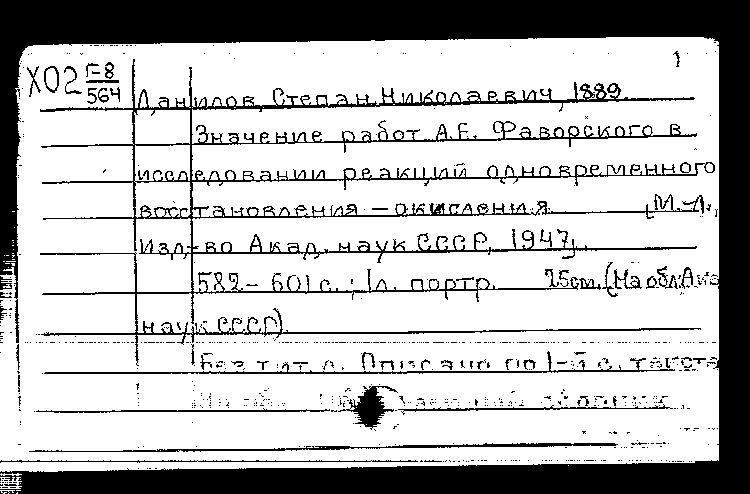 1
Х02 Г-8/564 Данилов, Степан Николаевич, 1889.
Значение работ А.Е. Фаворского в
исследовании реакций одновременного
восстановления - окисления. [М.-Л.,
Изд-во Акад. наук СССР, 1947].
582 - 601 с.; 1 л. портр. 25см. (На обл: Ака
наук СССР)
Без тит. л. Описано по 1-й с. текста
На обл.